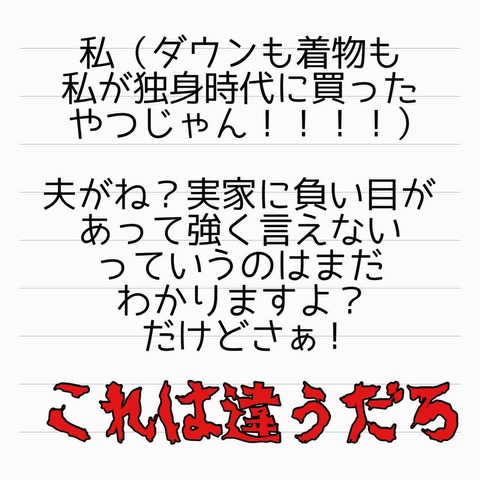 私（ダウンも着物も
私が独身時代に買った
やつじゃん！！！！）
夫がね？実家に負い目が
あって強く言えない
っていうのはまだ
わかりますよ？
だけどさぁ！
これは違うだろ